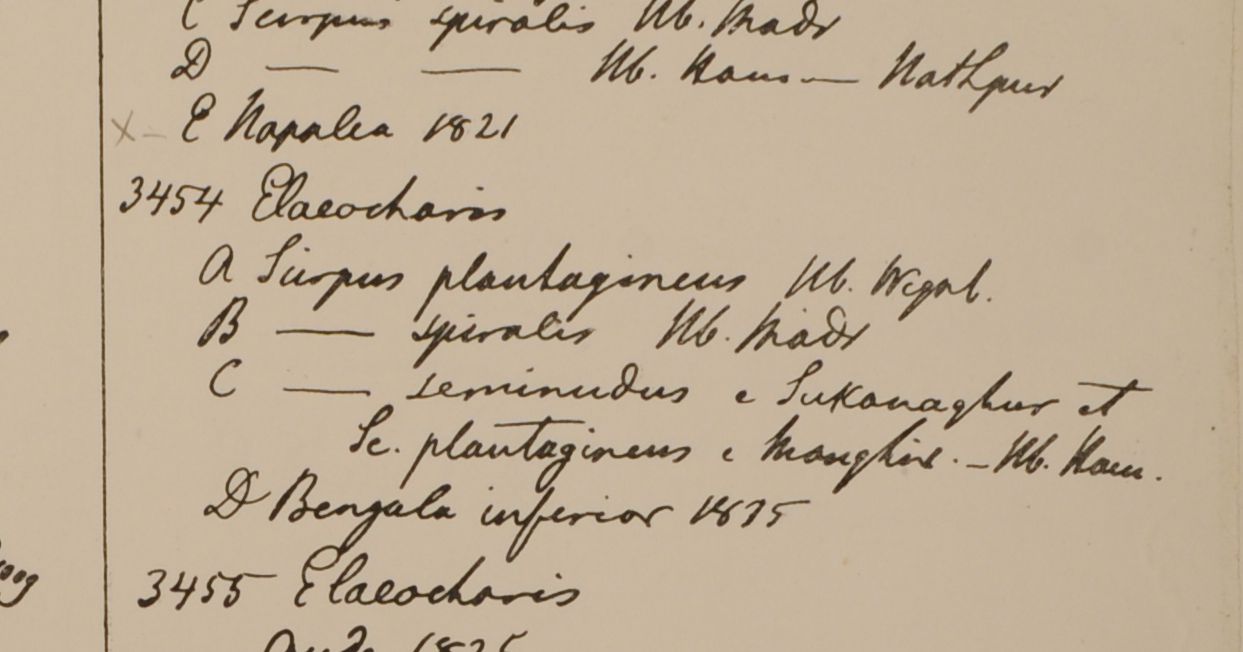 C Scirpus spiralis Hb. Madr
D — — Hb. Ham — Nathpur
X – E Napalea 1821
3454 Elaeocharis
A Scirpus plantagineus Hb. Wight.
B — spiralis Hb. Madr
C — seminudus e Sukanaghur et
Sc. plantagineus e Monghir. – Hb. Ham.
D Bengala inferior 1835
3455 Elaeocharis
1825